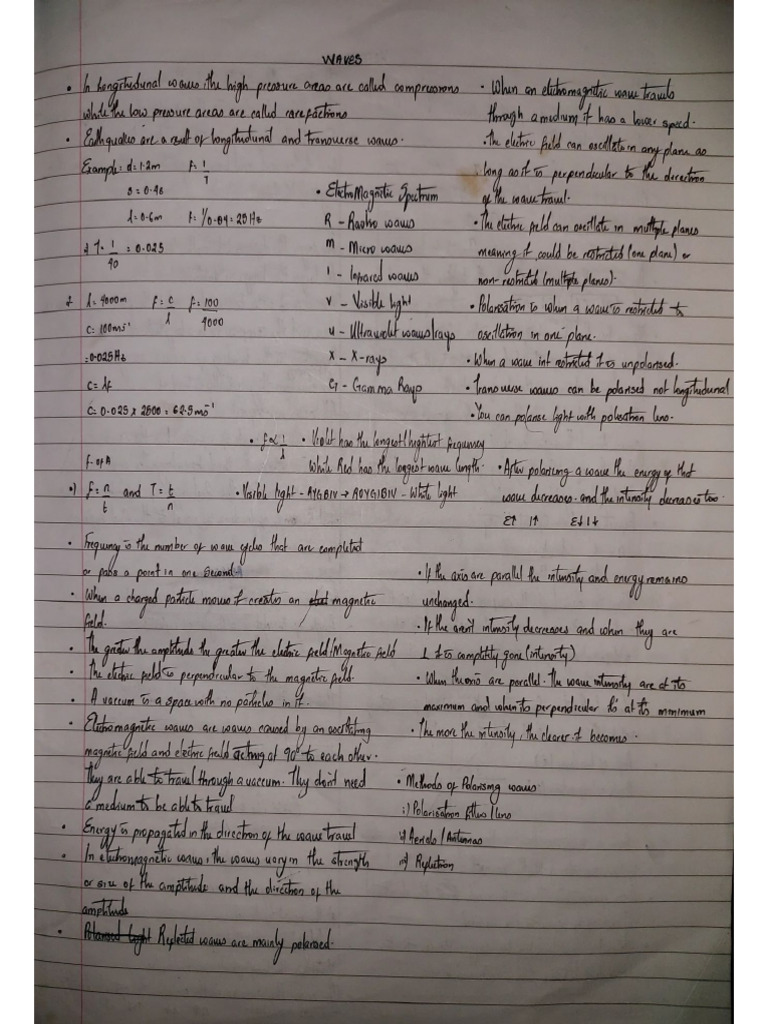 WAVES
• In longitudunal waves, the high pressure areas are called compressions
while the low pressure areas are called rarefactions
• Earthquakes are a result of longitudunal and transverse waves.
Example: d=1.2m f=1/T
s=0.4s
λ=0.6m f=1/0.04=25Hz
T=1/40=0.025
λ=4000m f=c/λ f=100/4000
c=100ms⁻¹
=0.025Hz
c=λf
c=0.025 x 2500=62.5ms⁻¹
• ElectroMagnetic Spectrum
R - Radio waves
m - Micro waves
I - Infrared waves
V - Visible light
u - Ultraviolet waves/rays
X - X-rays
G - Gamma Rays
• f∝1/λ • Violet has the longest/hightest frequency
While Red has the longest wave length.
•) f=n/t and T=t/n • Visible light - ROYGIBIV - White light
• Frequency is the number of wave cycles that are completed
or pass a point in one second.
• When a charged particle moves it creates an magnetic
field.
• The greater the amplitude the greater the electric field/Magnetic field
• The electric field is perpendicular to the magnetic field.
• A vaccum is a space with no particles in it.
• Electromagnetic waves are waves caused by an oscillating
magnetic field and electric field acting at 90° to each other.
They are able to travel through a vaccum. They don't need
a medium to be able to travel
• Energy is propagated in the direction of the wave travel
• In electromagnetic waves, the waves vary in the strength
or size of the amplitude and the direction of the
amplitude
• Polarised light Reflected waves are mainly polarised.
• When an electromagnetic wave travels
through a medium it has a lower speed.
• The electric field can oscillate in any plane as
long as it is perpendicular to the direction
of the wave travel.
• The electric field can oscillate in multiple planes
meaning it could be restricted (one plane) or
non-restricted (multiple planes).
• Polarisation is when a wave is restricted to
oscillation in one plane.
• When a wave isnt restricted it is unpolarised.
• Transverse waves can be polarised not longitudunal
• You can polarise light with lens.
• After polarising a wave the energy of that
wave decreases and the intensity decreases too.
E↑ I↑ E↓ I↓
• If the axis are parallel the intensity and energy remains
unchanged.
• If the aren't intensity decreases and when they are
⊥ it is completely gone (intensity)
• When are parallel. The wave intensity are at its
maximum and when its perpendicular is at its minimum
• The more the intensity, the clearer it becomes.
• Methods of Polarising waves
i) Polarisation filters/lens
ii) Aerials/Antennas
iii) Reflection